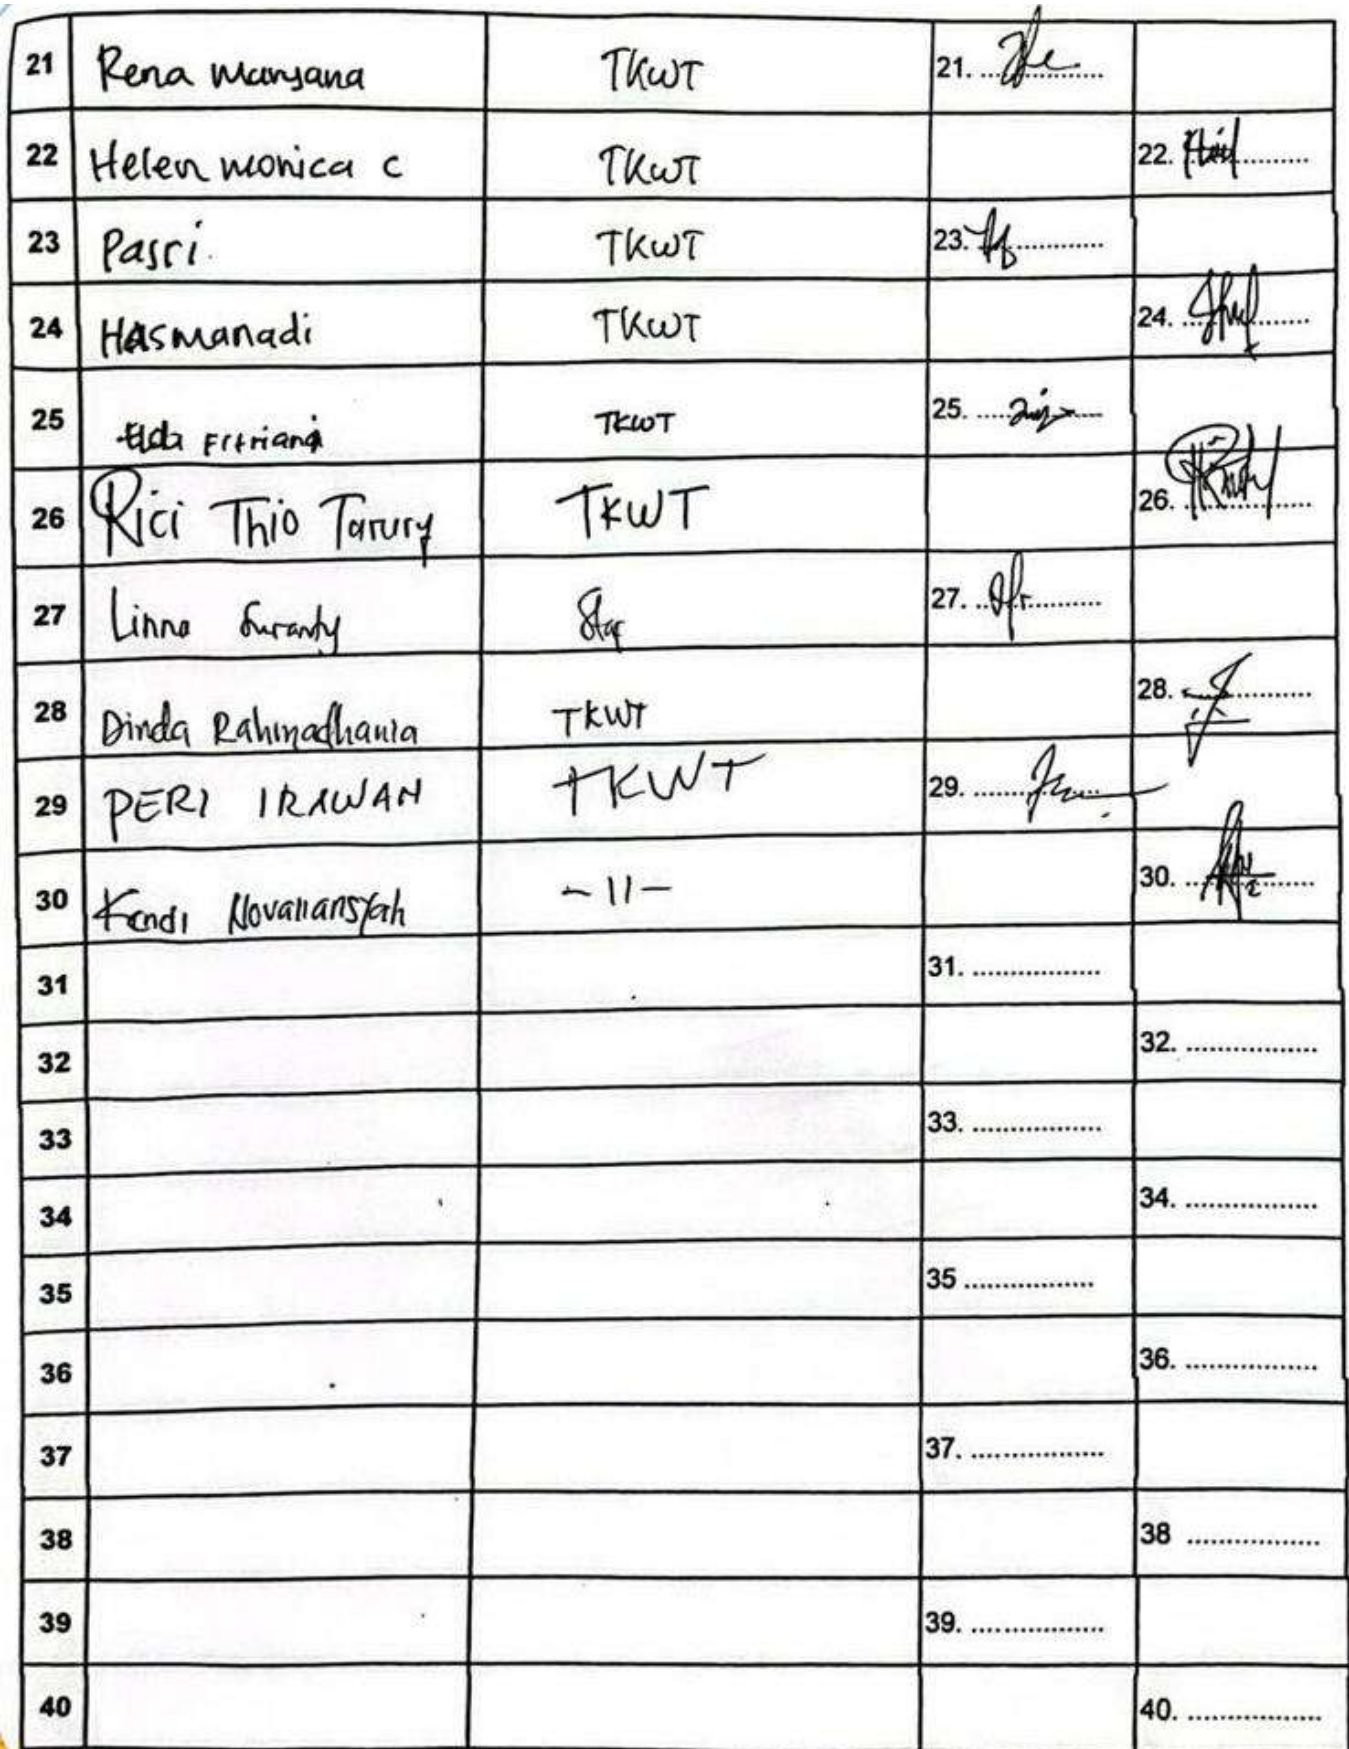 21 Rena Maryana TKWT 21. ..................
22 Helen monica c TKWT 22. ..................
23 Pasri. TKWT 23. ..................
24 Hasmanadi TKWT 24. ..................
25 Elda Fitriani TKWT 25. ..................
26 Rici Thio Tarury TKWT 26. ..................
27 Linna Suranty Staf 27. ..................
28 Dinda Rahmadhania TKWT 28. ..................
29 PERI IRAWAN TKWT 29. ..................
30 Kendi Novariansyah -11- 30. ..................
31 31. ..................
32 32. ..................
33 33. ..................
34 34. ..................
35 35 ..................
36 36. ..................
37 37. ..................
38 38 ..................
39 39. ..................
40 40. ..................